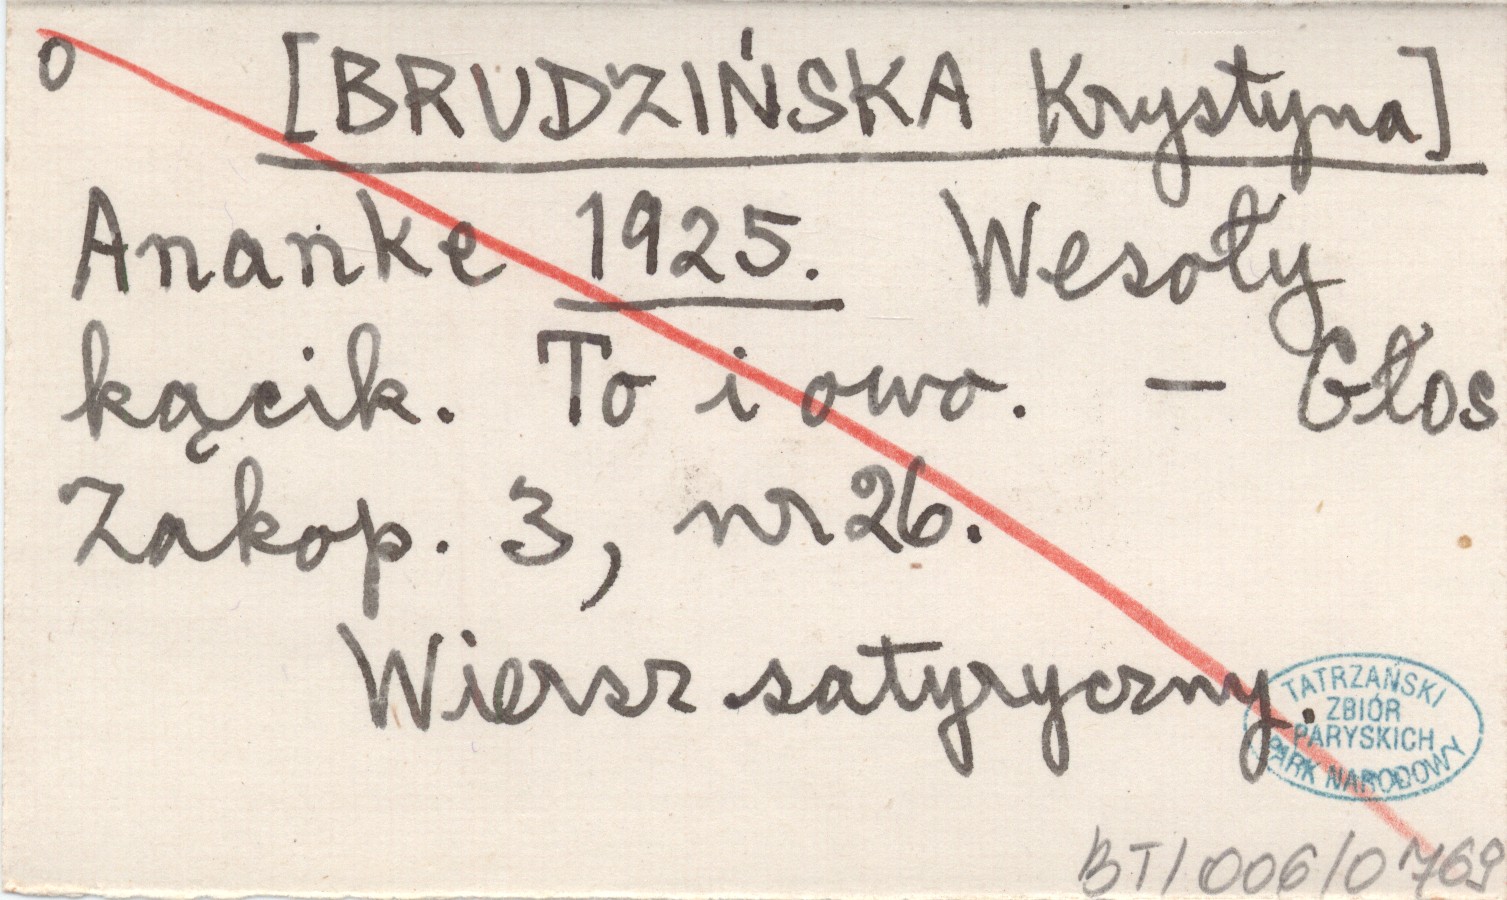 o [BRUDZIŃSKA Krystyna]
Ananke 1925. Wesoły
kącik. To i owo. — Głos
Zakop. 3, nr 26.
Wiersz satyryczny.
TATRZAŃSKI
ZBIÓR
PARYSKICH
PARK NARODOWY
BT/006/0769